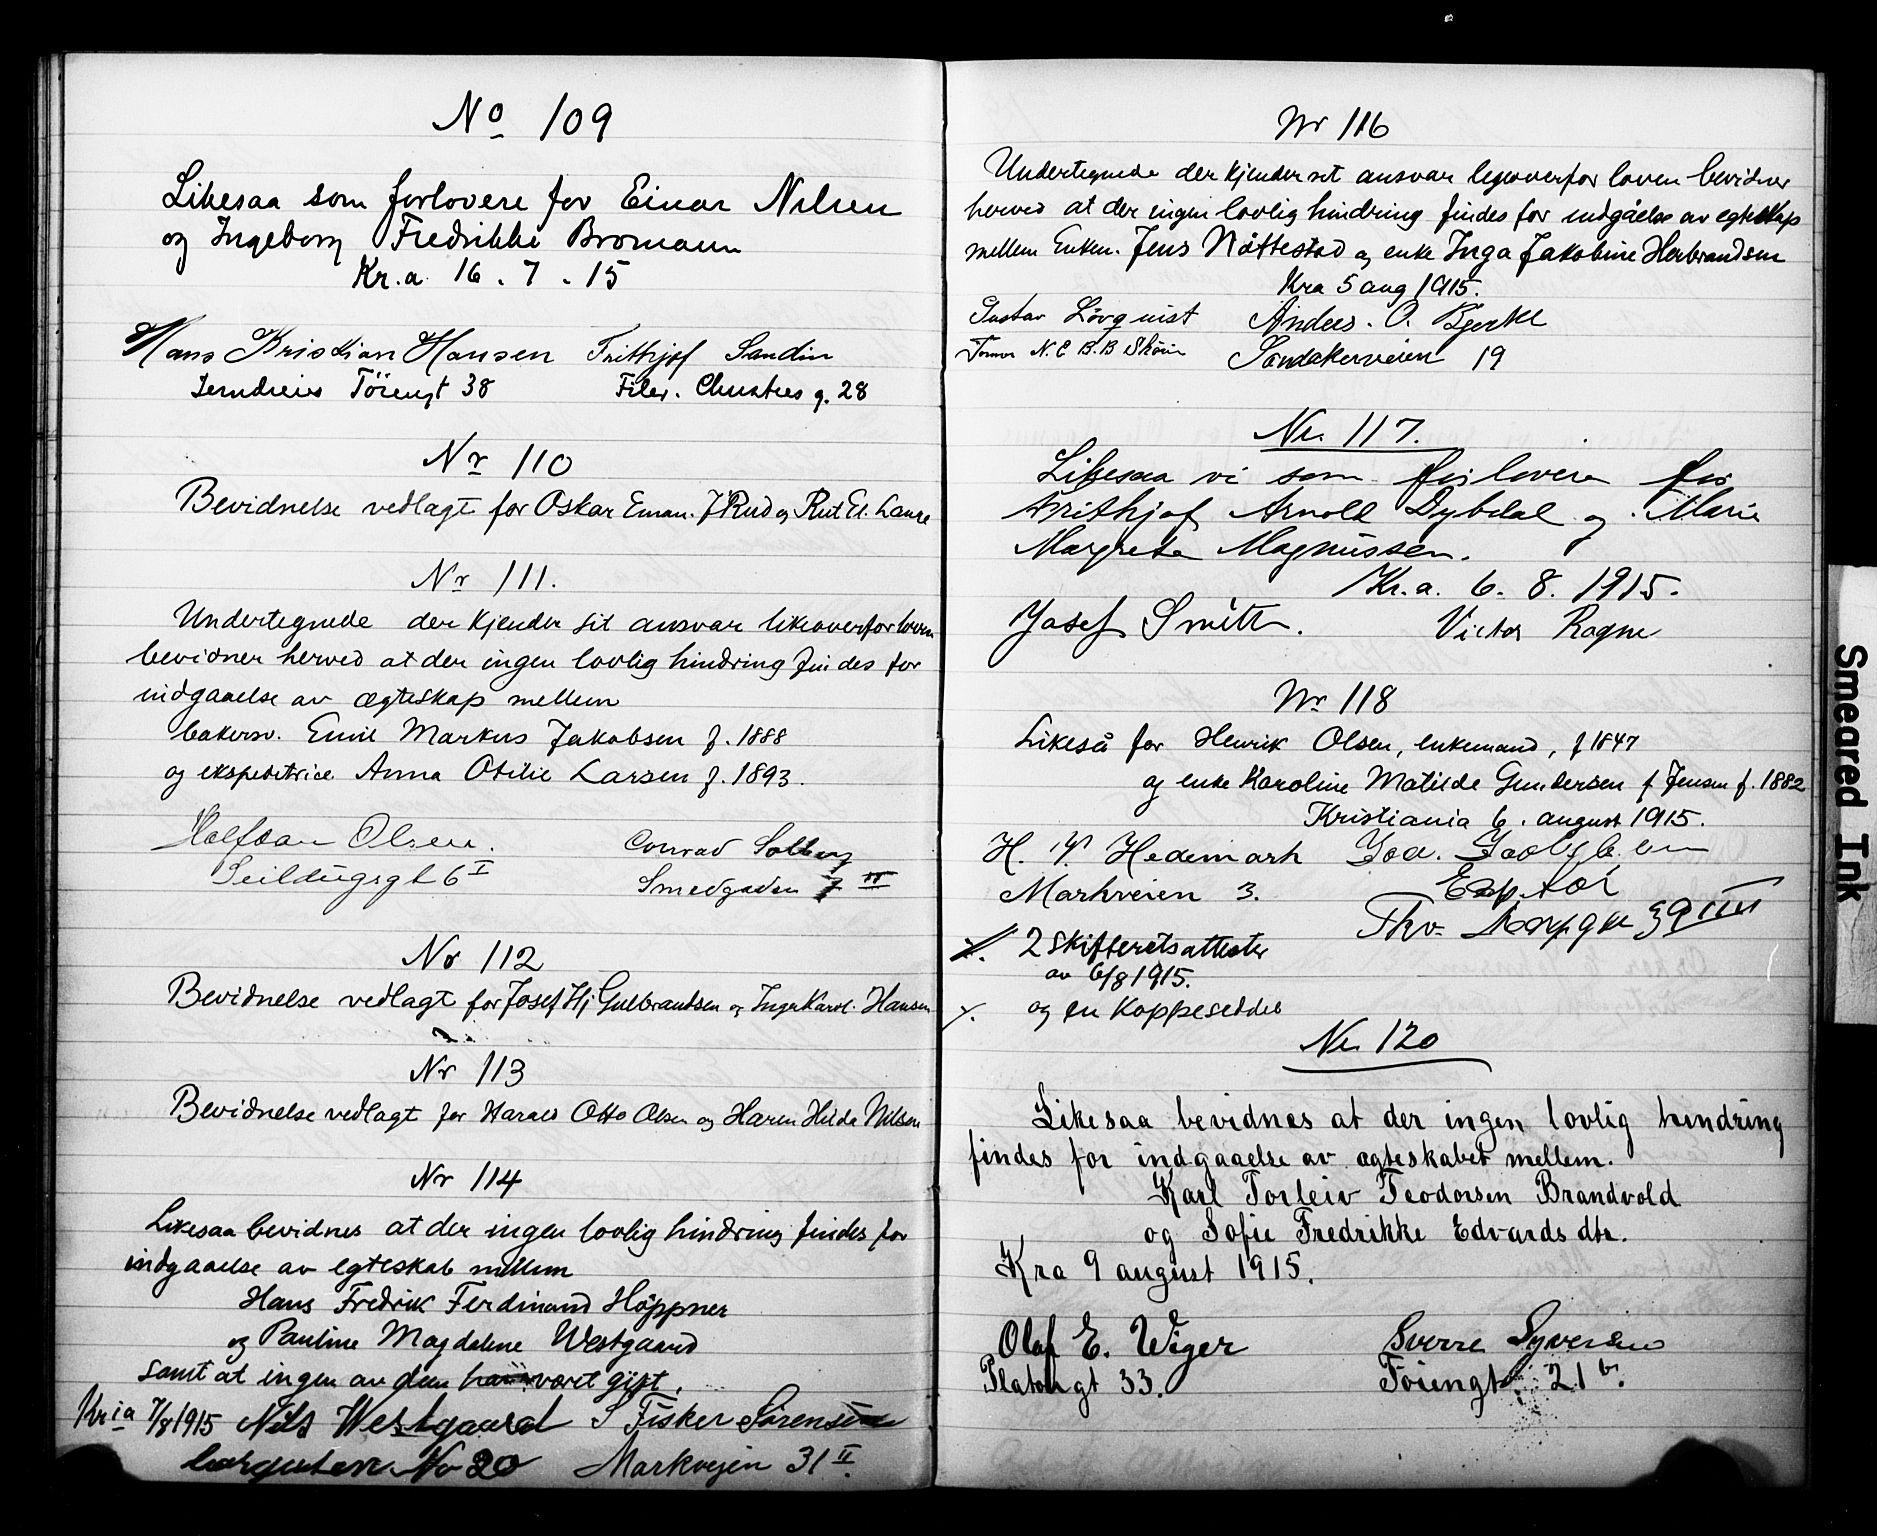 No 109
Likesaa som forlovere for Einar Nilsen
og Ingeborg Fredrikke Bromann
Kr.a 16 . 7 . 15
Hans Kristian Hansen Frithjof Sandin
Töiengt 38 Filer. Christies g. 28
Nr 110
Bevidnelse vedlagt for Oskar Eman. J Rud og Rut El. Laure
Nr 111.
Undertegnede der kjender sit ansvar likeoverfor loven
bevidner herved at der ingen lovlig hindring findes for
indgaaelse av ægteskap mellem
bakersv. Emil Markus Jakobsen f. 1888
og ekspeditrice Anna Otilie Larsen f. 1893.
Halfdan Olsen. Conrad Solberg
Seildugsgt 6 I Smedgaden 7 II
Nr 112
Bevidnelse vedlagt for Josef Hj Gulbrandsen og Inga Karol. Hansen
Nr 113
Bevidnelse vedlagt for Harald Otto Olsen og Karen Hilda Nilsen
Nr 114
Likesaa bevidnes at der ingen lovlig hindring findes for
indgaaelse av egteskab mellem
Hans Fredrik Ferdinand Höppner
og Pauline Magdalene Westgaard
samt at ingen av dem har været gift.
Kria 7/8 1915 Nils Westgaard S Fisker Sörensen
No 20 Markvejen 31 II.
Nr 116
Undertegnede der kjender sit ansvar ligeoverfor loven bevidner
herved at der ingen lovlig hindring findes for indgåelse av egteskap
mellem Enkem. Jens Nöttestad og enke Inga Jakobine Herbrandsen
Kra 5 aug 1915.
Gustav Lövquist Anders. O. Bjerke
N. E B. B Sandakerveien 19
Nr. 117.
Likesaa vi som forlovere for
Frithjof Arnold Dybdal og Marie
Margrete Magnussen.
Kr.a. 6. 8. 1915.
Josef Smitt. Victor Ragne
Nr 118
Likeså for Henrik Olsen, enkemand, f 1847
og enke Karoline Matilde Gundersen f. Jensen f. 1882
Kristiania 6. august 1915.
H. Hedemark
Markveien 3.
Thv. Meyers gt 39 IIII
×. 2 skifteretsattester
av 6/8 1915.
×. og en koppeseddel
Nr. 120
Likesaa bevidnes at der ingen lovlig hindring
findes for indgaaelse av ægteskabet mellem.
Karl Torleiv Teodorsen Brandvold
og Sofie Fredrikke Edvards dtr.
Kra 9 august 1915.
Olaf E. Wiger Sverre Syversen
Platougt 33. Töiengt. 21 b.
Smeared Ink